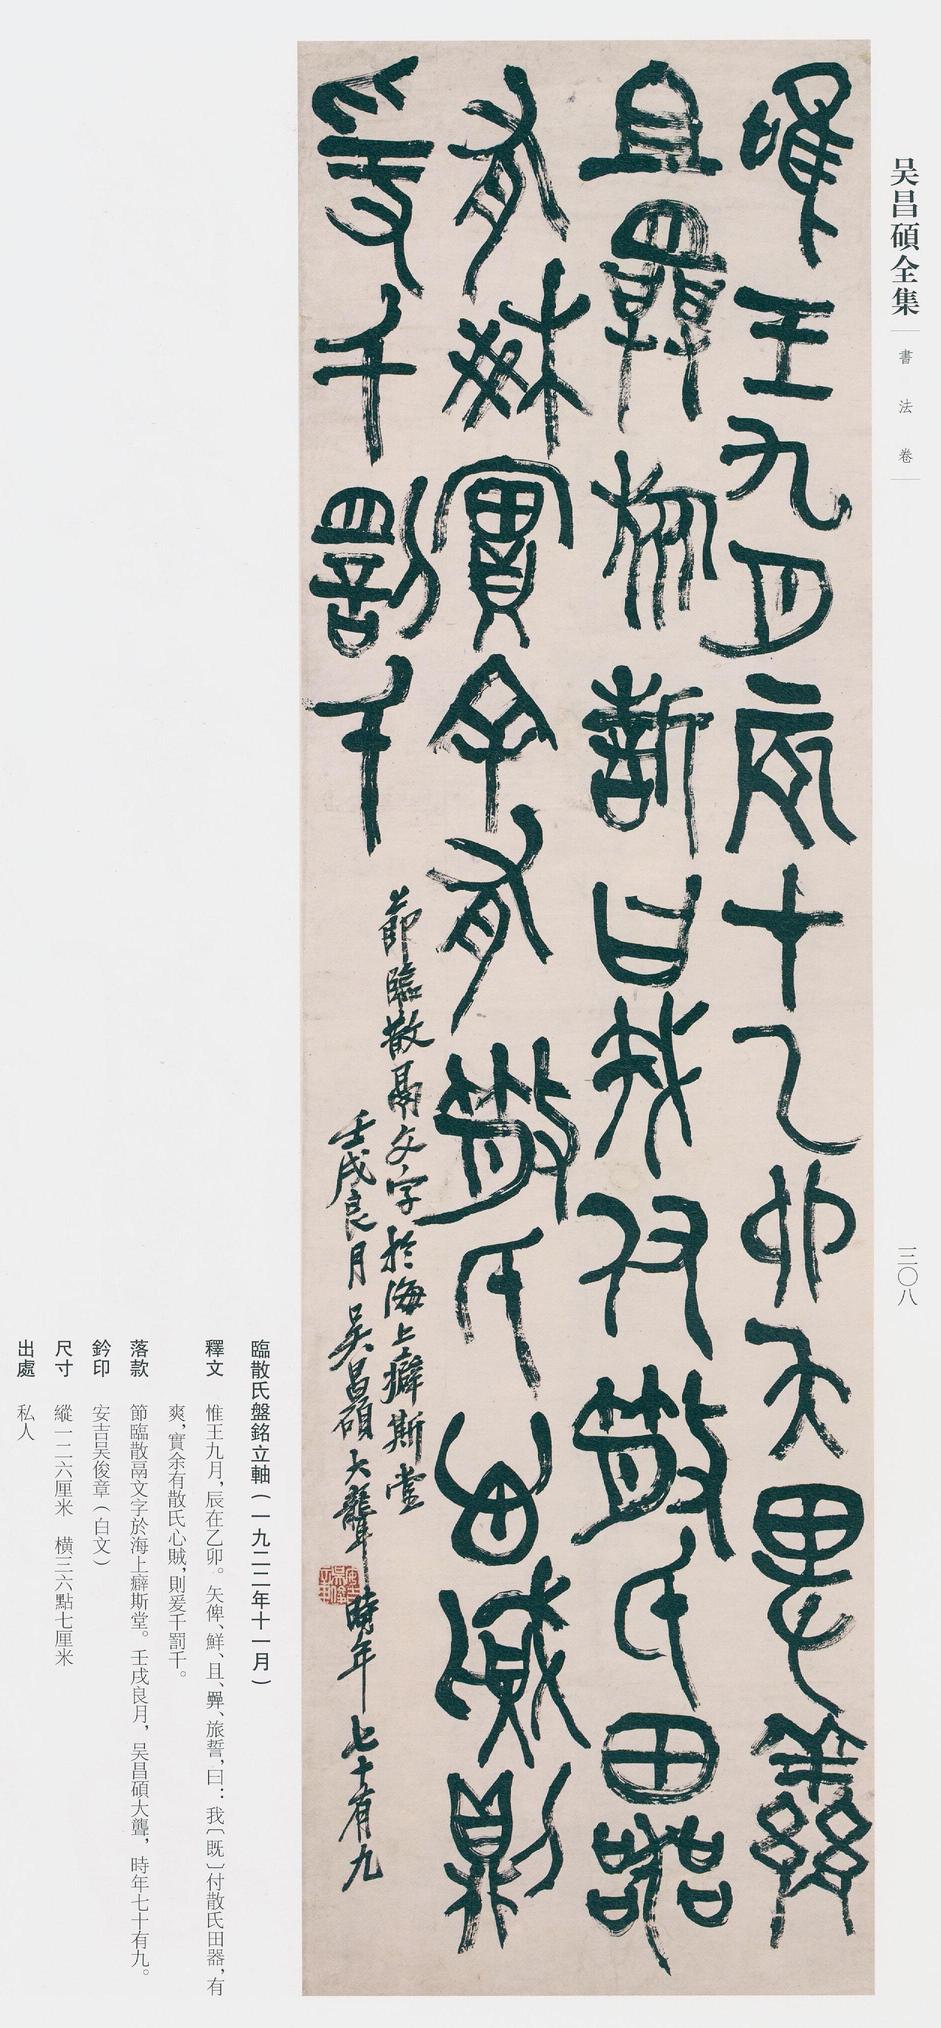 吴昌碩全集
書法卷
三〇八
唯王九月辰才乙卯夨卑鮮
且𢍰旅誓曰我付散氏田器
有爽實余有散氏心賊則
爰千罰千
節臨散鬲文字於海上癖斯堂
壬戌良月吴昌碩大聾時年七十有九
安吉吴俊章
臨散氏盤銘立軸(一九二二年十一月)
釋文 惟王九月,辰在乙卯。夨俾、鮮、且、𢍰、旅誓,曰:我〔既〕付散氏田器,有
爽,實余有散氏心賊,則爰千罰千。
落款 節臨散鬲文字於海上癖斯堂。壬戌良月,吴昌碩大聾,時年七十有九。
鈐印 安吉吴俊章(白文)
尺寸 縱一二六厘米 横三六點七厘米
出處 私人